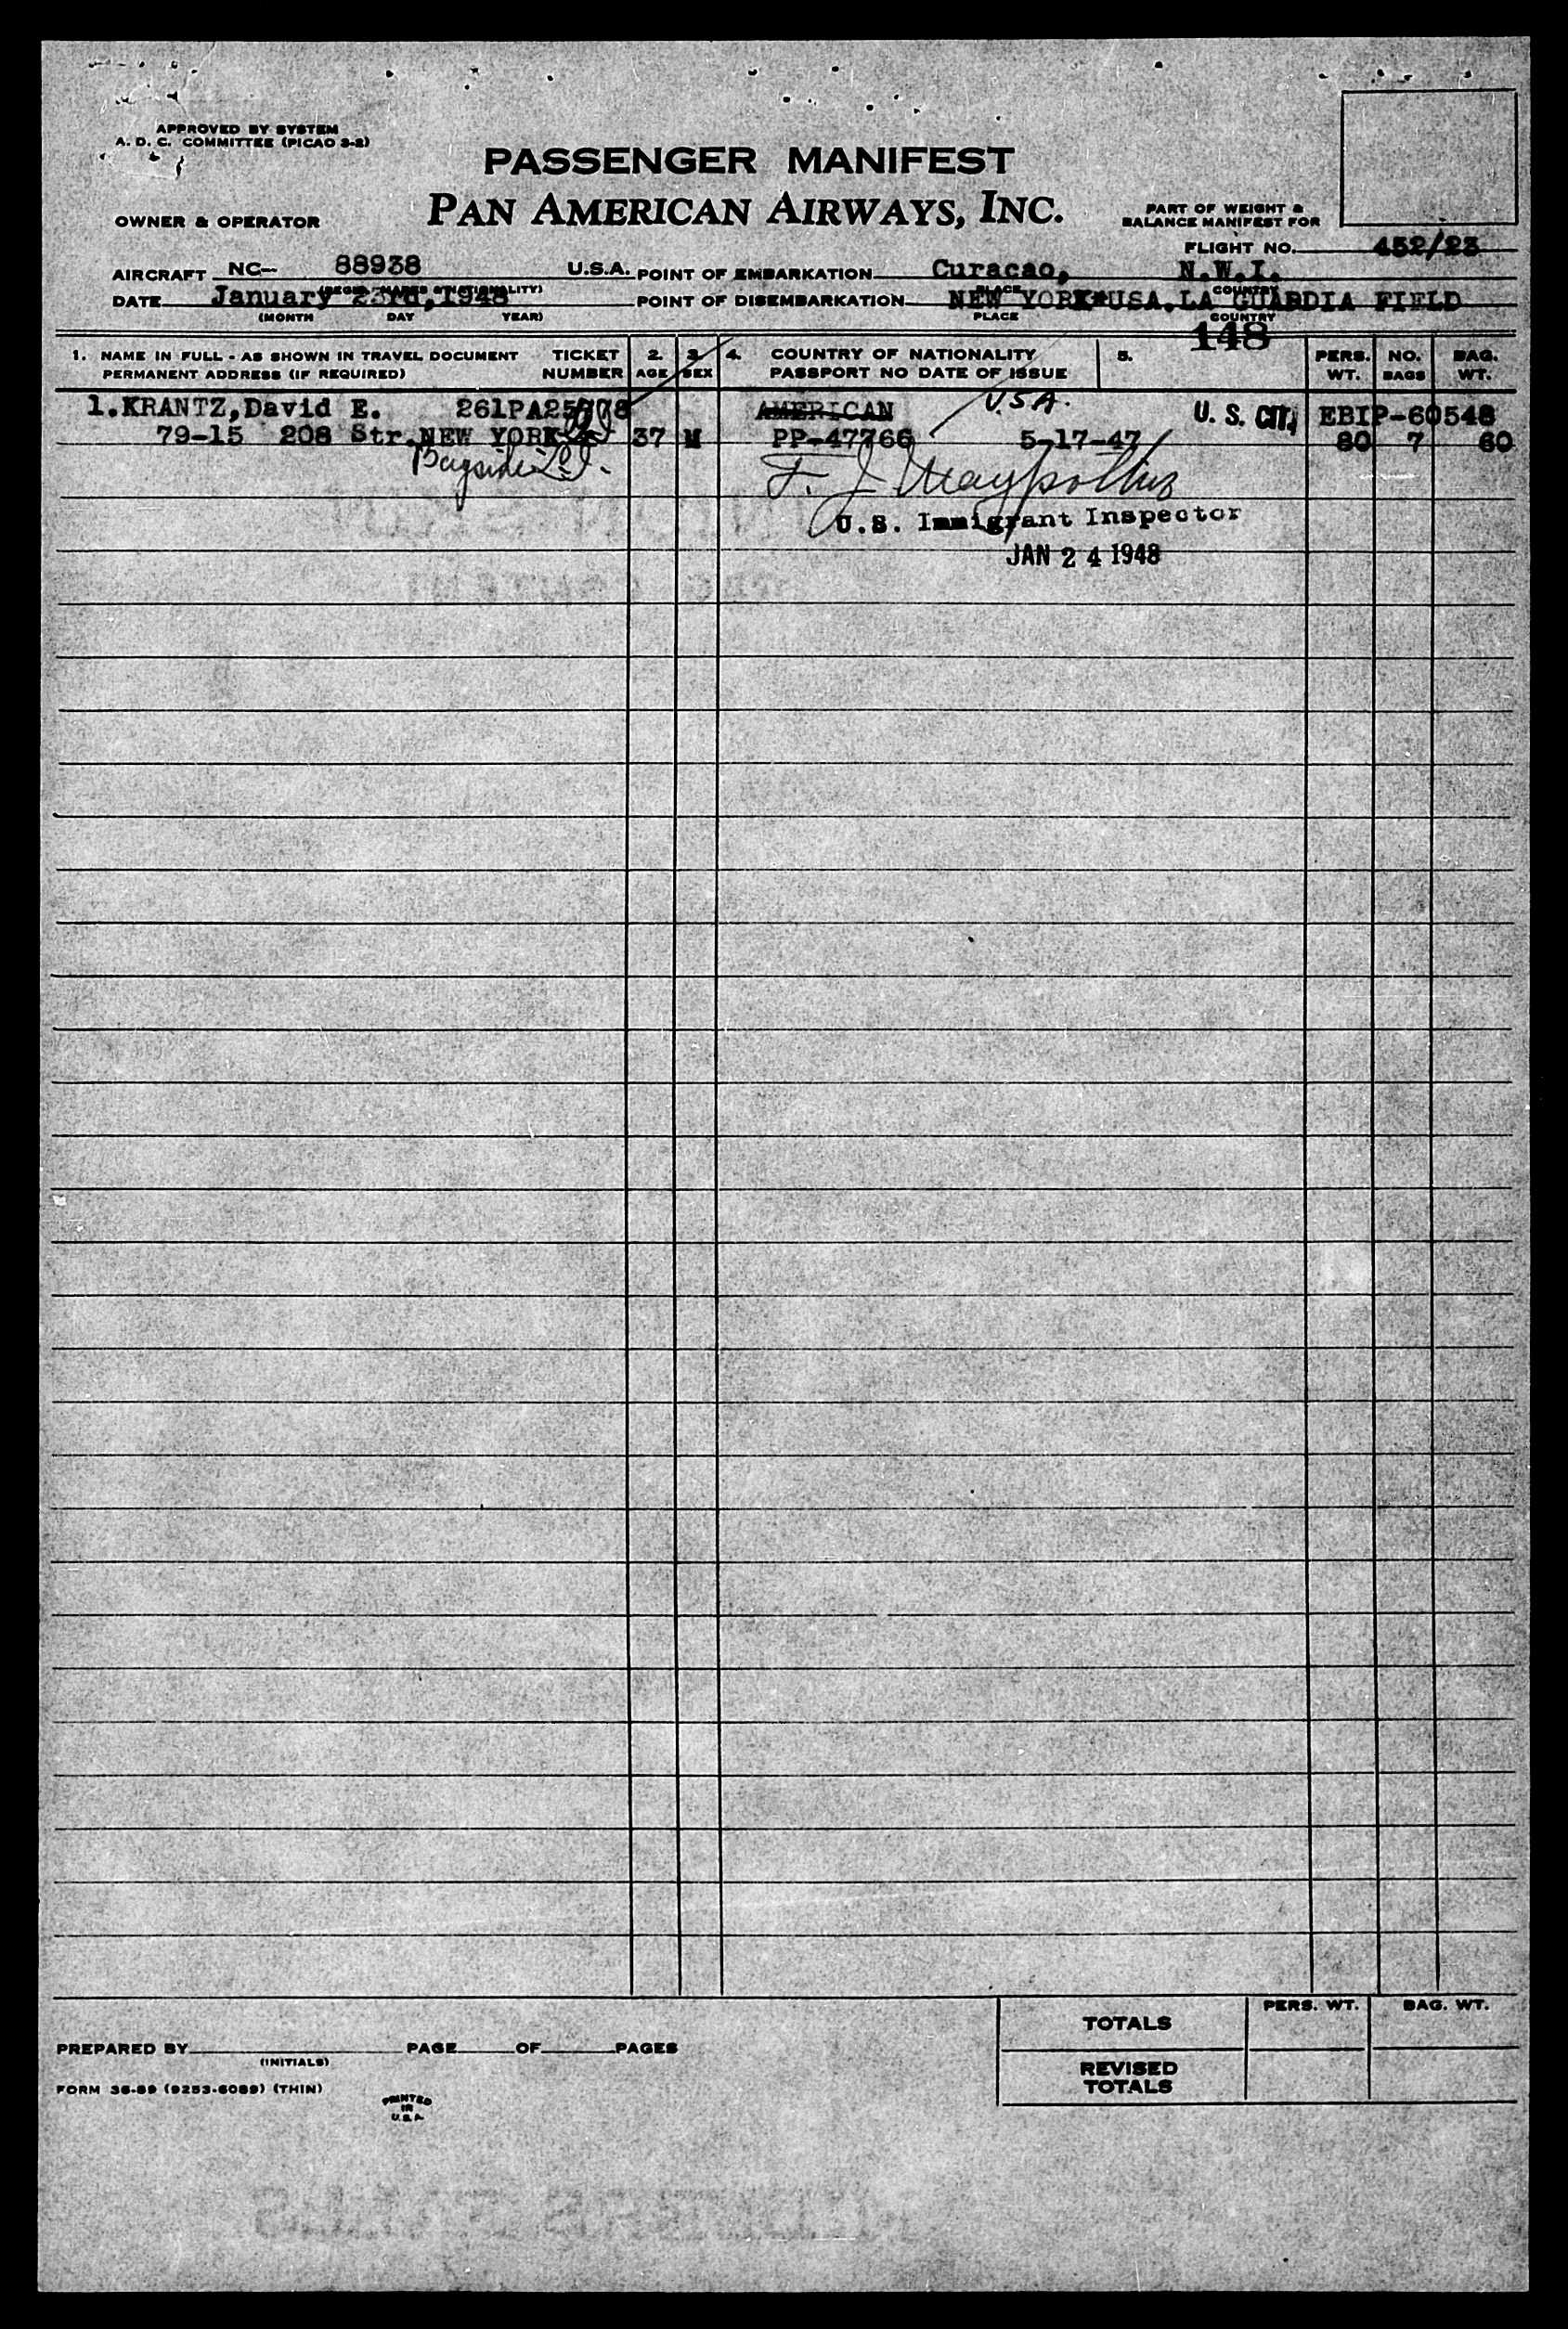 APPROVED BY SYSTEM
A. D. C. COMMITTEE (PICAO 3-2)
PASSENGER MANIFEST
PAN AMERICAN AIRWAYS, INC.
OWNER & OPERATOR
PART OF WEIGHT &
BALANCE MANIFEST FOR
FLIGHT NO. 452/23
AIRCRAFT NC- 88938 U.S.A. POINT OF EMBARKATION Curacao, N.W.I.
PLACE COUNTRY
DATE January 23rd, 1948 POINT OF DISEMBARKATION NEW YORK*USA.LA GUARDIA FIELD
(MONTH DAY YEAR) PLACE COUNTRY
148
1. NAME IN FULL - AS SHOWN IN TRAVEL DOCUMENT TICKET 2. 3. 4. COUNTRY OF NATIONALITY 5. PERS. NO. BAG.
PERMANENT ADDRESS (IF REQUIRED) NUMBER AGE SEX PASSPORT NO DATE OF ISSUE WT. BAGS WT.
1.KRANTZ,David E. AMERICAN U.S.A. U. S. CIT. EBIP-60548
79-15 208 Str.NEW YORK 37 M PP-47766 5-17-47 80 7 60
Bayside L.I.
U.S. Immigrant Inspector
JAN 24 1948
TOTALS PERS. WT. BAG. WT.
PREPARED BY PAGE OF PAGES
(INITIALS)
REVISED
TOTALS
FORM 36-89 (9253-6089) (THIN)
PRINTED
IN
U.S.A.